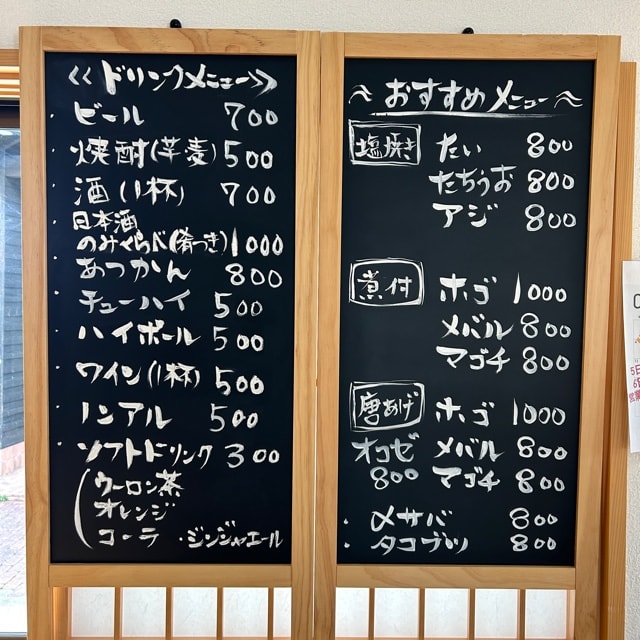 <<ドリンクメニュー>>
・ビール 700
・焼酎(芋麦) 500
・酒(1杯) 700
・日本酒
のみくらべ(肴つき) 1000
・あつかん 800
・チューハイ 500
・ハイボール 500
・ワイン(1杯) 500
・ノンアル 500
・ソフトドリンク 300
(ウーロン茶
オレンジ
コーラ ・ジンジャエール
〜おすすめメニュー〜
塩焼き たい 800
たちうお 800
アジ 800
煮付 ホゴ 1000
メバル 800
マゴチ 800
唐あげ ホゴ 1000
オコゼ 800
メバル 800
マゴチ 800
・〆サバ 800
・タコブツ 800
5日
6日
営業